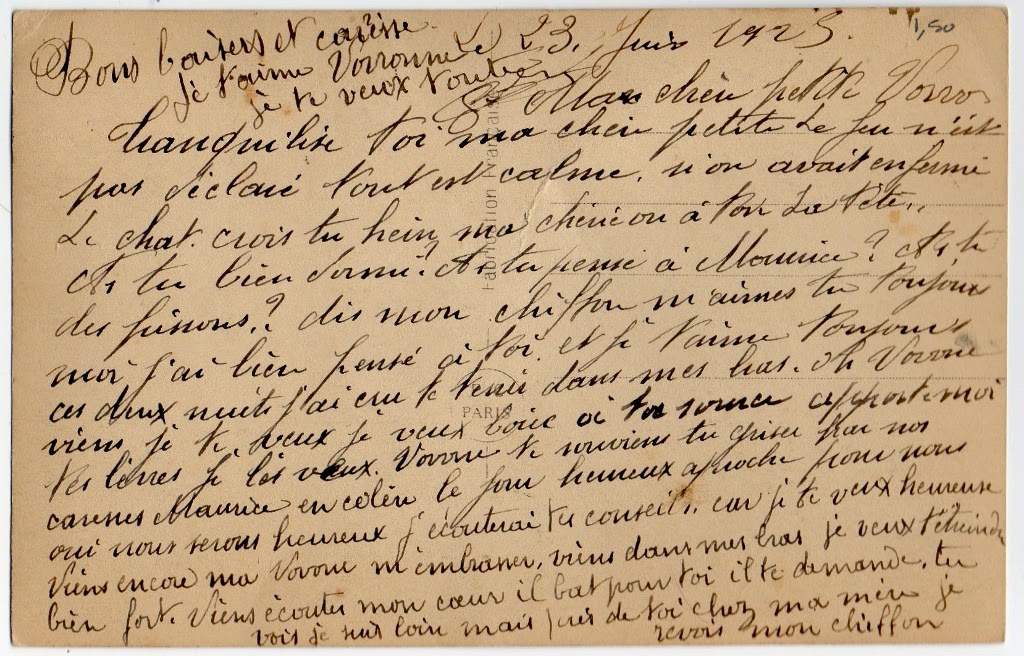 Bons baisers et caresse
je t'aime Vovonne
je te veux
23 Juin 1925.
1,50
Ma chère petite Vovo
tranquilise toi ma chère petite Le feu n'est
pas déclaré tout est calme. si on avait enfermé
Le chat. crois tu hein ma chérie on a La tête..
As tu bien dormi? As tu pensé à Maurice? As tu
des frissons? dis mon chiffon m'aimes tu toujours
moi j'ai bien pensé à toi et je t'aime toujours
ces deux nuits j'ai cru te tenir dans mes bras. oh Vovone
viens je te veux je veux boire à ta source apporte moi
tes lèvres je les veux. Vovone te souviens tu griser par nos
caresses Maurice en colère le jour heureux aproche pour nous
oui nous serons heureux j'écouterai tes conseils, car je te veux heureuse
Viens encore ma Vovone m'embrasser, viens dans mes bras je veux t'étreindre
bien fort. Viens écouter mon cœur il bat pour toi il te demande. tu
vois je suis loin mais près de toi chez ma mère je
revois mon chiffon
Fabrication Française
PARIS